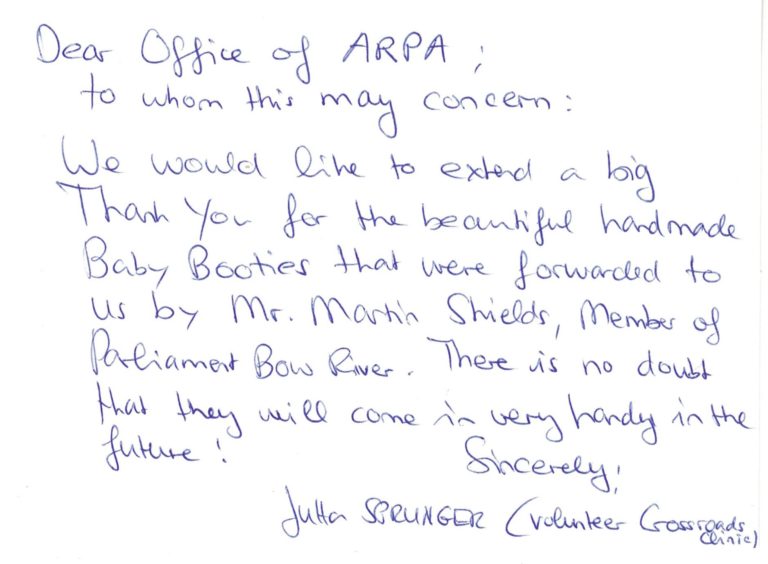 Dear Office of ARPA ;
to whom this may concern :
We would like to extend a big
Thank You for the beautiful handmade
Baby Booties that were forwarded to
us by Mr. Martin Shields, Member of
Parliament Bow River. There is no doubt
that they will come in very handy in the
future !
Sincerely,
Jutta SPRUNGER (Volunteer Crossroads
Clinic)